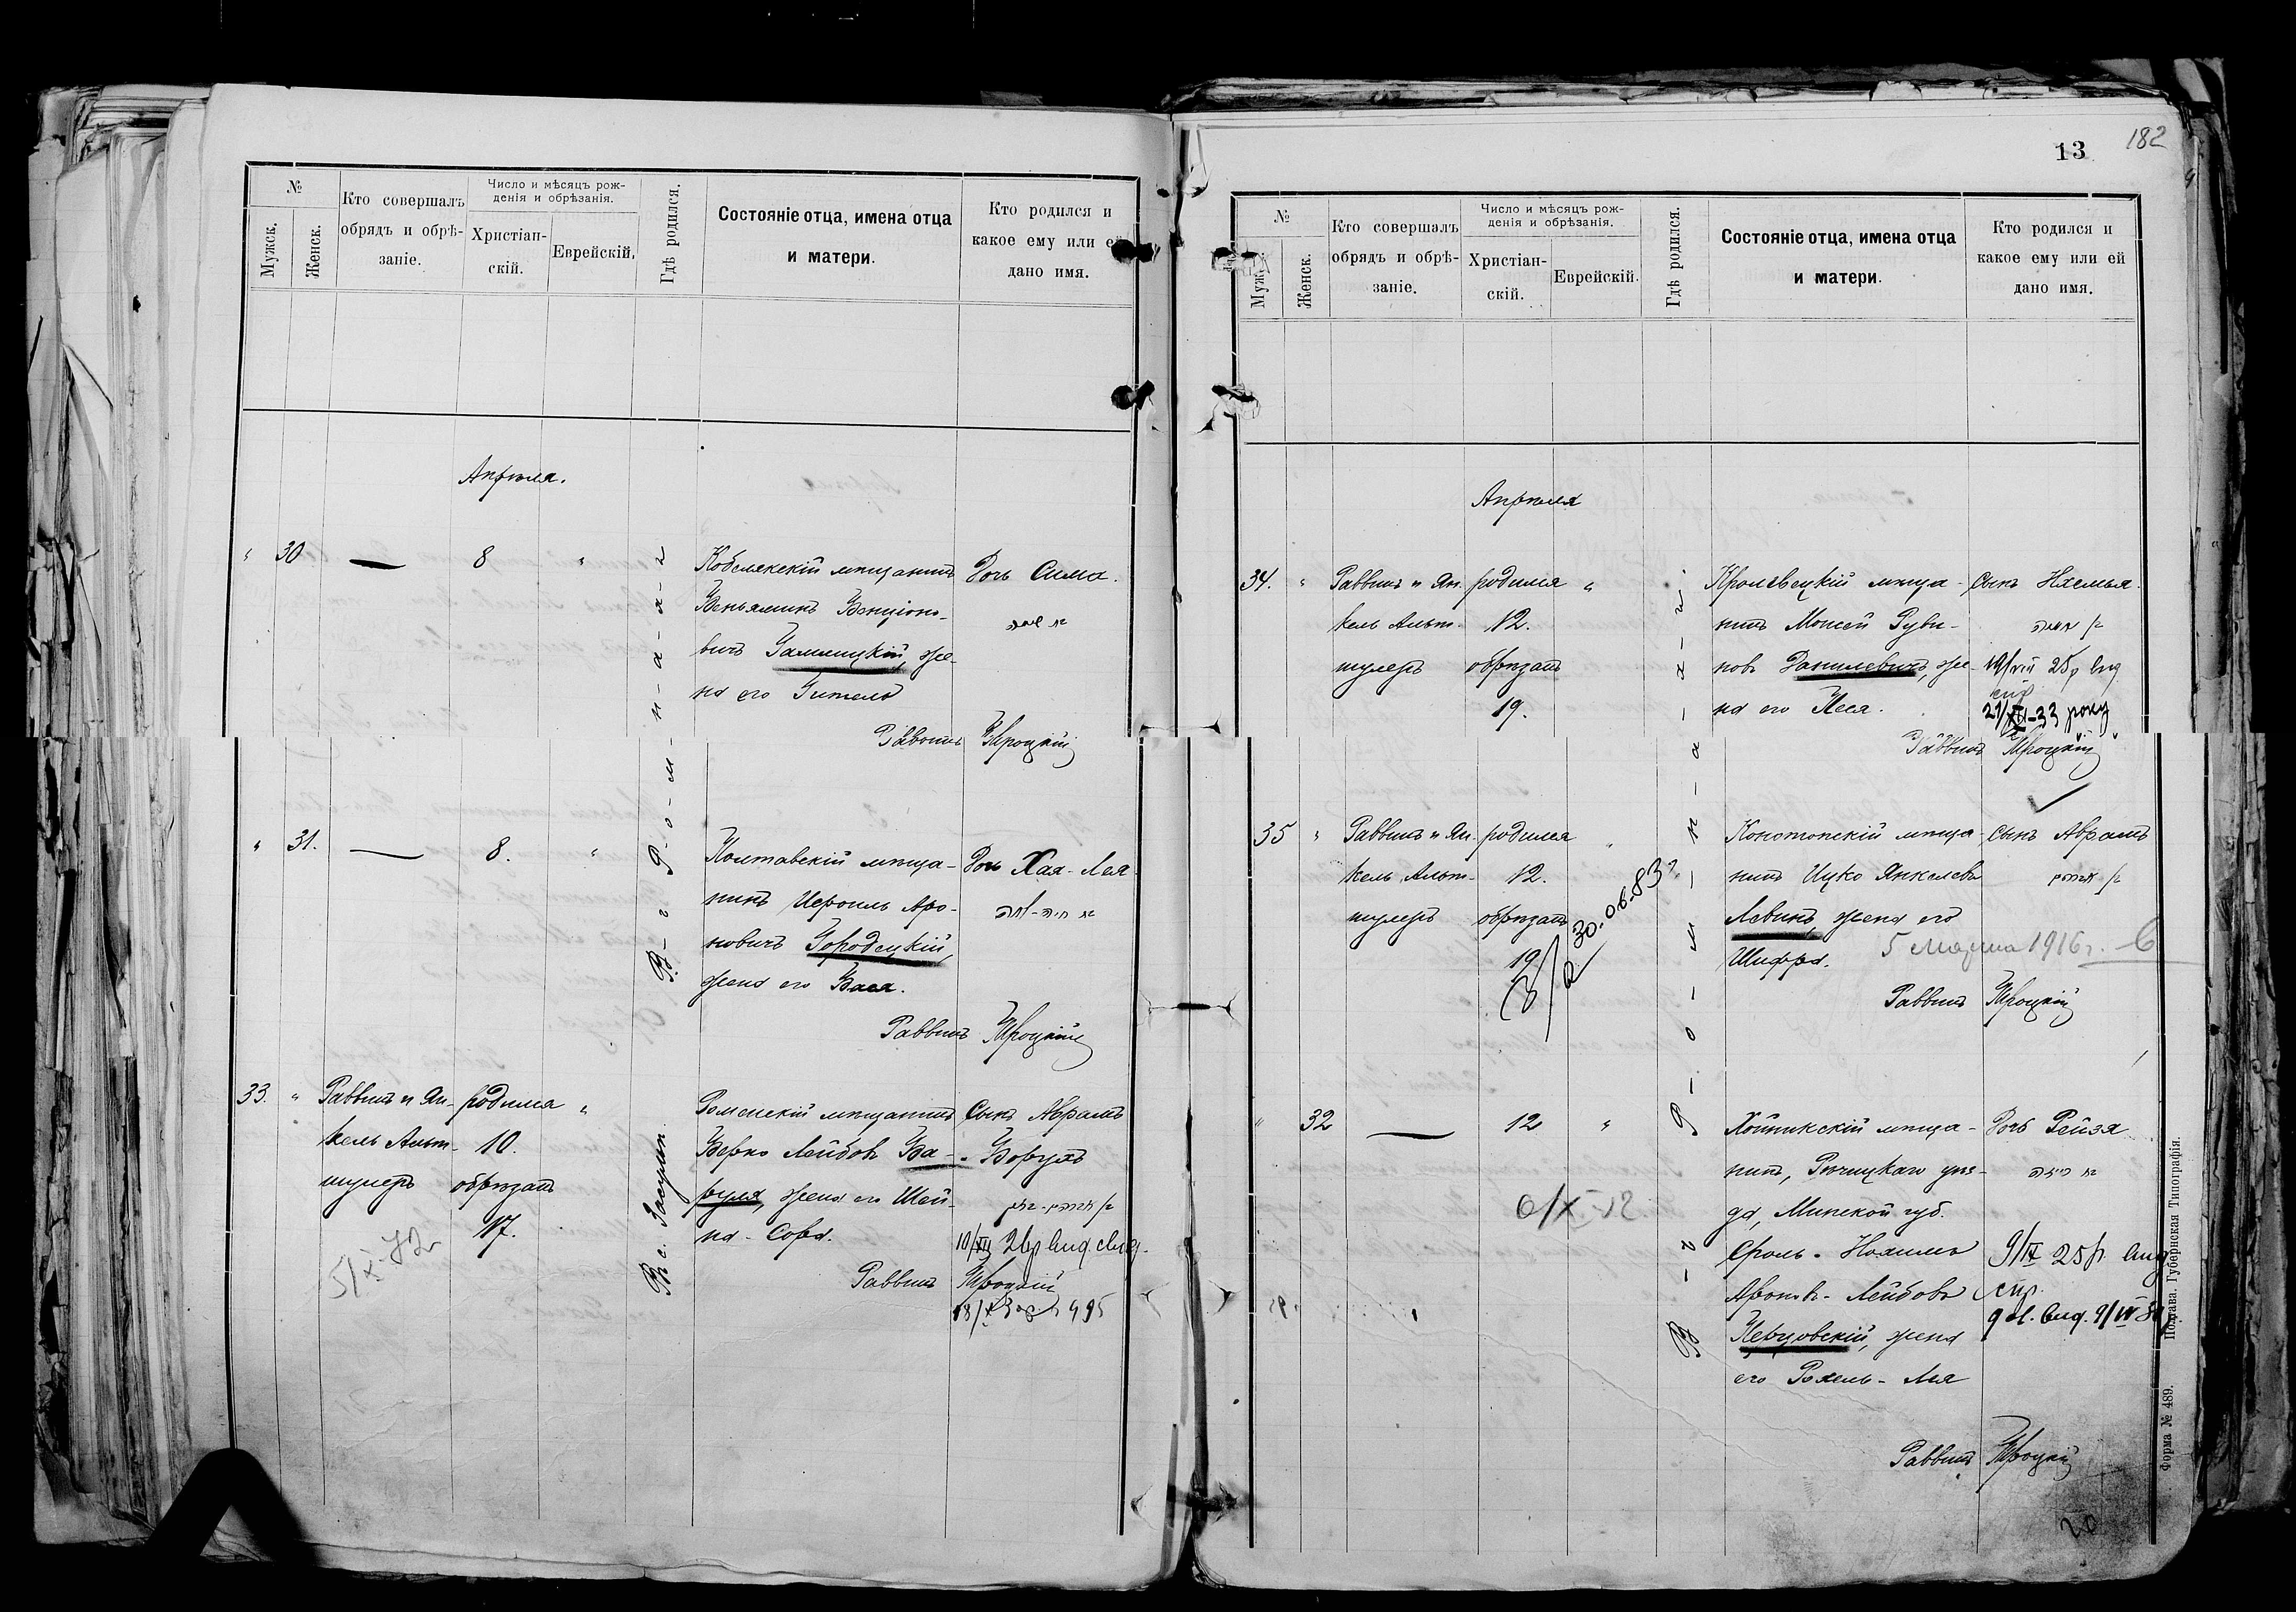 №
Мужск.
Женск.
Кто совершалъ
обрядъ и обрѣ-
заніе.
Число и мѣсяцъ рож-
денія и обрѣзанія.
Христіан-
скій.
Еврейскій.
Гдѣ родился.
Состояніе отца, имена отца
и матери.
Кто родился и
какое ему или ей
дано имя.
Апрѣля.
В-г Р-о-м-н-а-х-2
" 30 — 8 "
Кобелякскій мѣщанинъ
Веньяминъ Бенціоно-
вичъ
же-
на его Гитель
Дочь Сима.
Раввинъ Троцкій
" 31. — 8. "
Полтавскій мѣща-
нинъ Исроиль Аро-
новичъ Городецкій,
жена его Вася.
Дочь Хая-Лея
Раввинъ Троцкій
33. " Раввинъ и Ян-
кель Альт-
шулеръ
родился
10.
обрѣзанъ
17.
"
5/X-72
Роменскій мѣщанинъ
Берко Лейбовъ Ба-
руля, жена его Шей-
на-Сора.
Сынъ Абрамъ
Борухъ
10/XII 26р вид.
Раввинъ Троцкій
13 182
№
Женск.
Кто совершалъ
обрядъ и обрѣ-
заніе.
Число и мѣсяцъ рож-
денія и обрѣзанія.
Христіан-
скій.
Еврейскій.
Гдѣ родился.
Состояніе отца, имена отца
и матери.
Кто родился и
какое ему или ей
дано имя.
Апрѣля
34. " Раввинъ и Ян-
кель Альт-
шулеръ
родился
12.
обрѣзанъ
19.
"
Кролевецкій мѣща-
нинъ Моисей Руви-
новъ Данилевичъ, же-
на его Песя.
Сынъ Нхемья.
19/VIII 25р вид
21/XII-33 року
Раввинъ Троцкій
35 " Раввинъ и Ян-
кель Альт-
шулеръ
родился
12.
обрѣзанъ
19
"
30.06.83
Конотопскій мѣща-
нинъ Ицко Янкелевъ
Левинъ, жена его
Шифра.
Сынъ Абрамъ
5 Марта 1916 г.
Раввинъ Троцкій
" 32 — 12 "
Хойникскій мѣща-
нинъ, Рѣчицкаго уѣз-
да, Минской губ.
Сроль-Нохимъ
Ароновъ-Лейбовъ
жена
его Рохель-Лея
Дочь Рейзя
9/IX 25р вид
Раввинъ Троцкій
20
Форма № 489.
Полтава. Губернская Типографія.